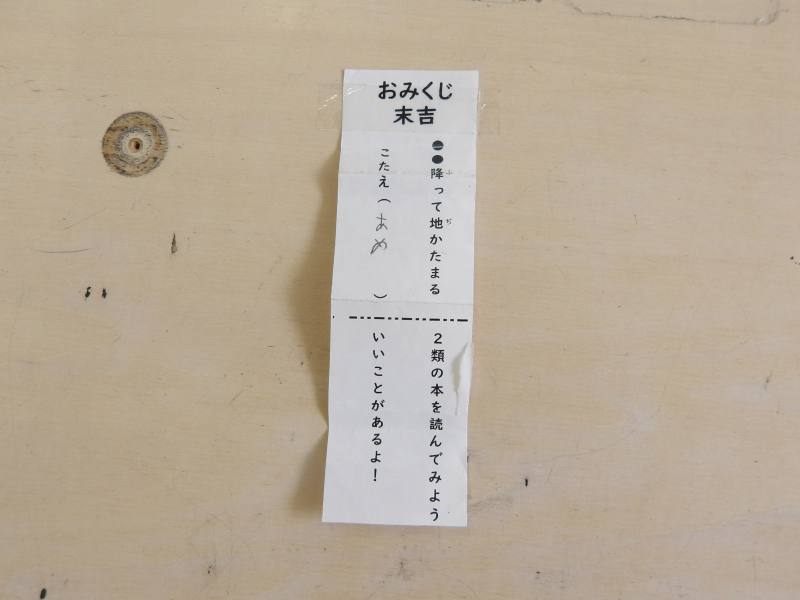 おみくじ
末吉
●●降って地かたまる
こたえ（あめ）
2類の本を読んでみよう
いいことがあるよ！